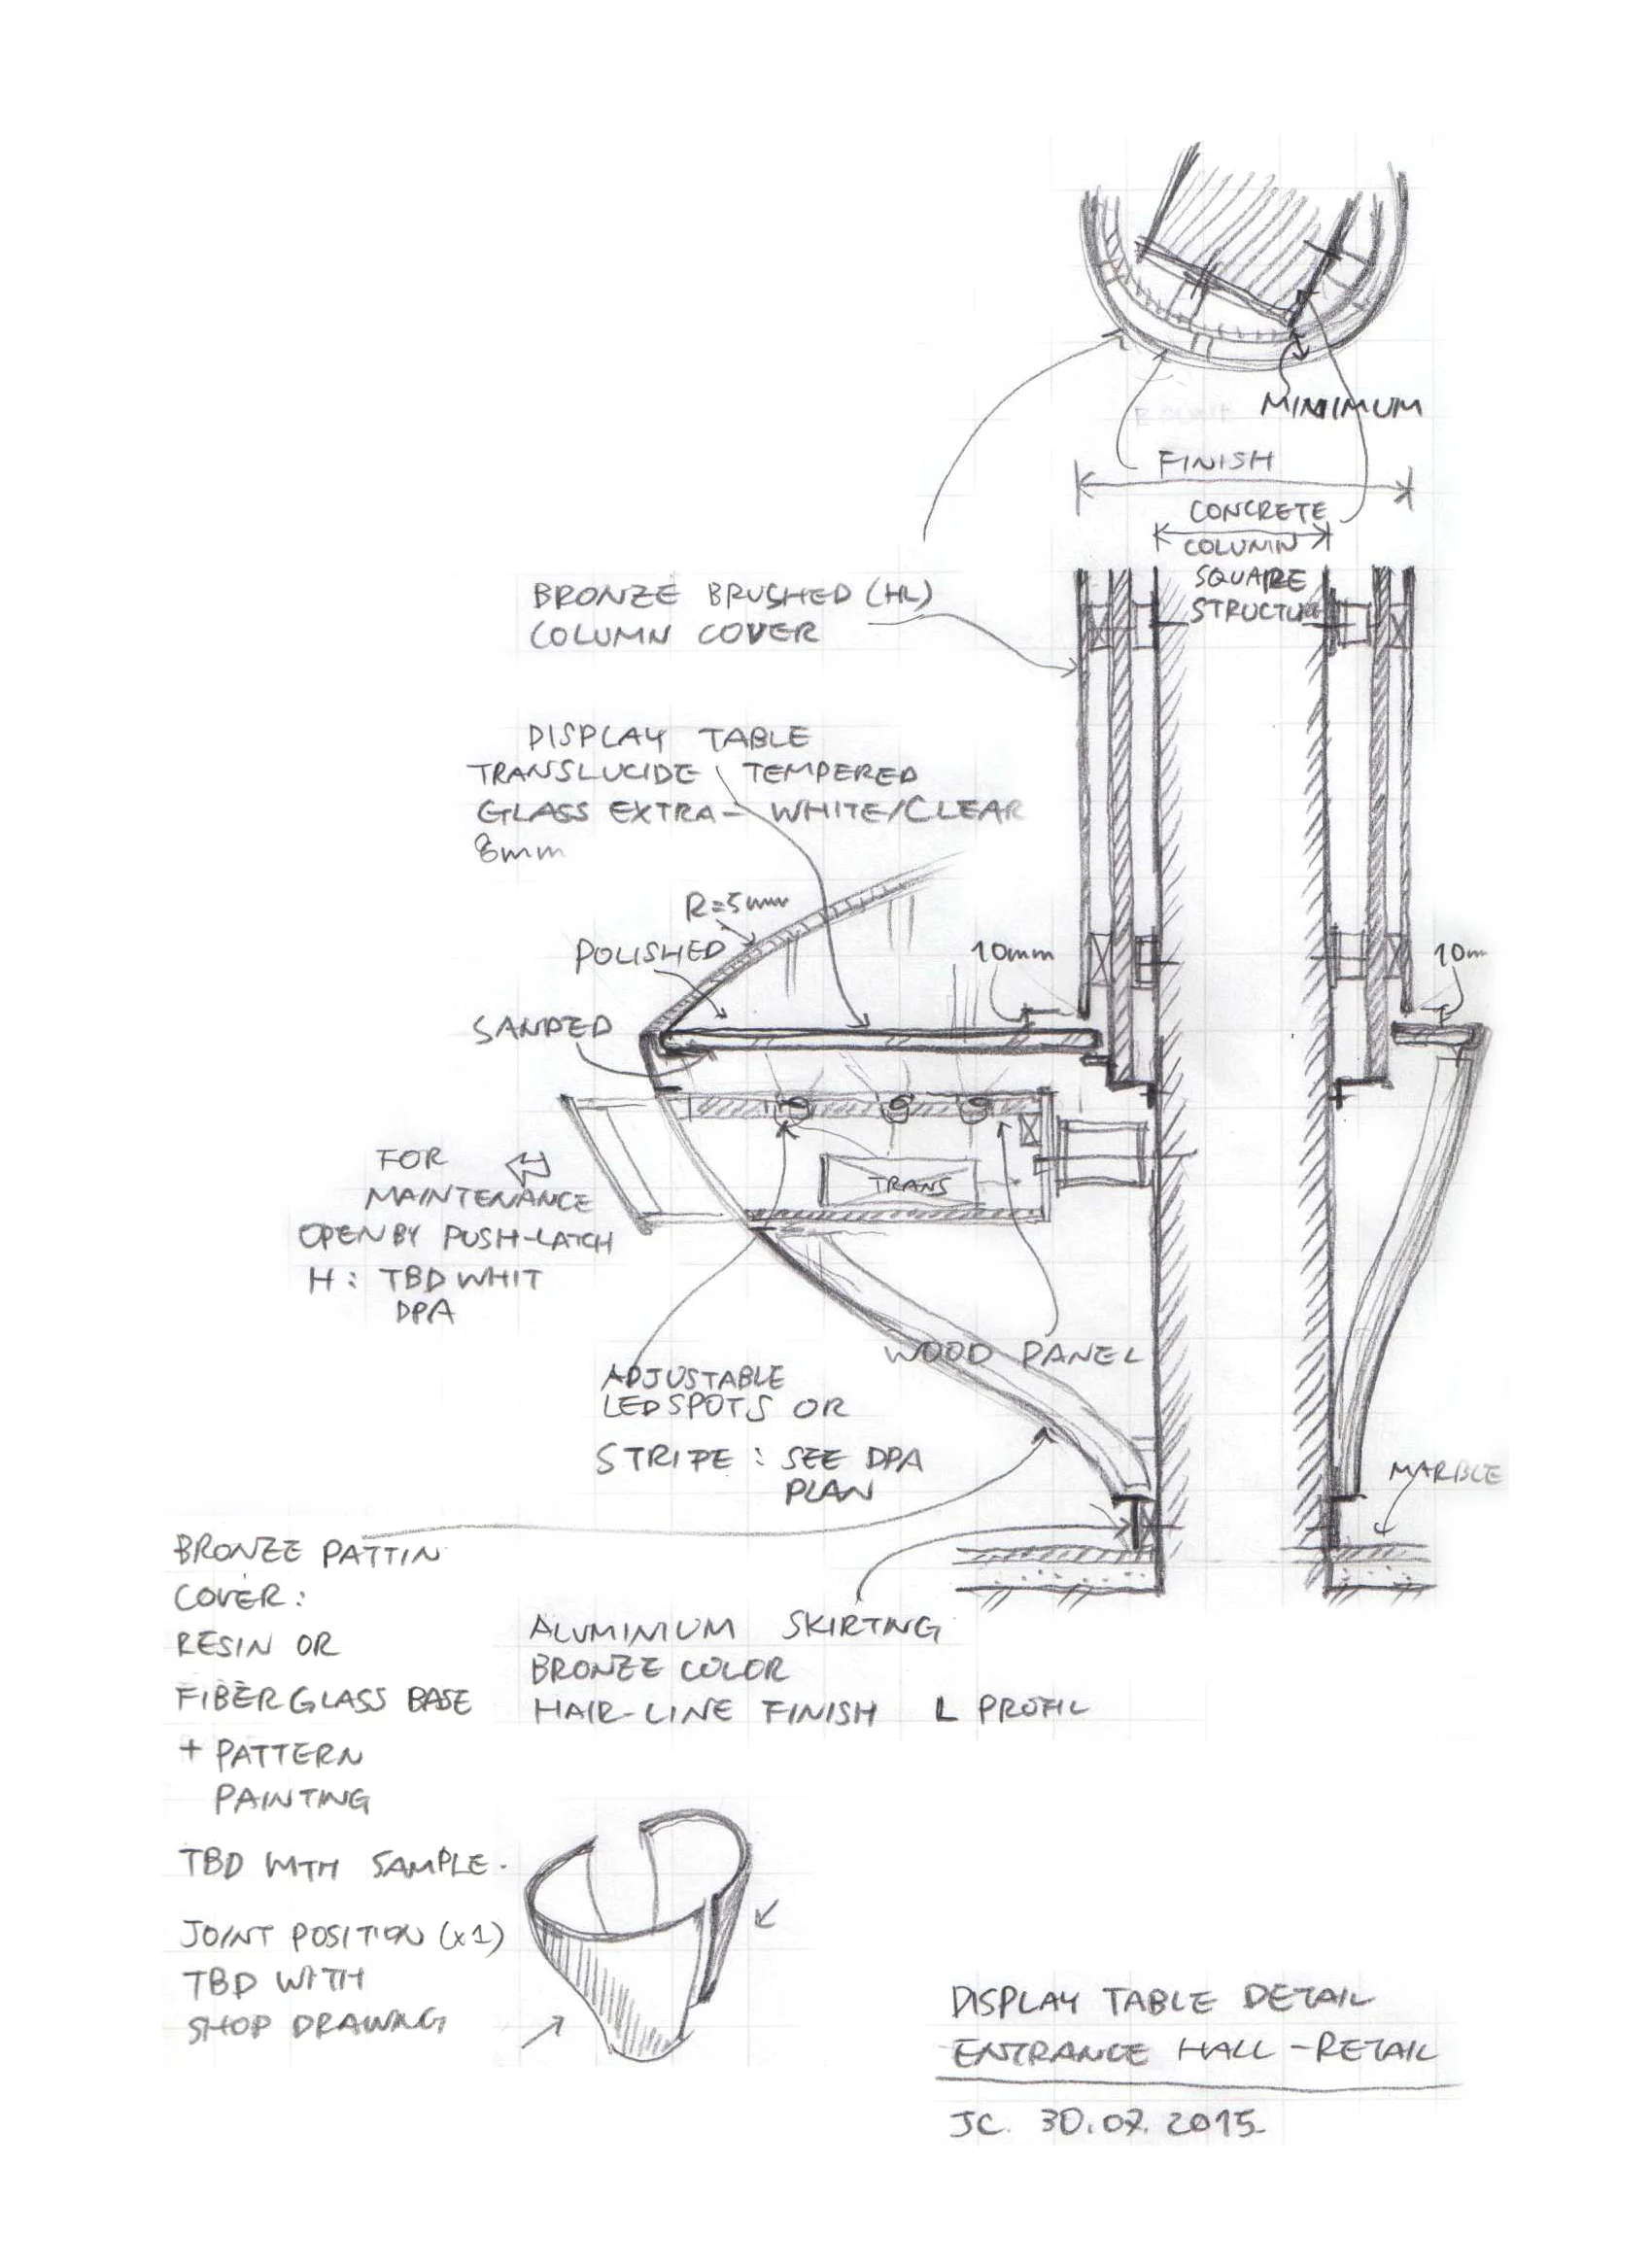 MINIMUM
FINISH
CONCRETE
COLUMN
SQUARE
STRUCTURE
BRONZE BRUSHED (HL)
COLUMN COVER
DISPLAY TABLE
TRANSLUCIDE TEMPERED
GLASS EXTRA- WHITE/CLEAR
8mm
R=5mm
POLISHED
10mm
10m
SANDED
FOR
MAINTENANCE
OPEN BY PUSH-LATCH
H: TBD WHIT
DPA
TRANS
WOOD PANEL
ADJUSTABLE
LED SPOTS OR
STRIPE : SEE DPA
PLAN
MARBLE
BRONZE PATTIN
COVER:
RESIN OR
FIBERGLASS BASE
+ PATTERN
PAINTING
TBD WITH SAMPLE.
JOINT POSITION (x1)
TBD WITH
SHOP DRAWING
ALUMINIUM SKIRTING
BRONZE COLOR
HAIR-LINE FINISH L PROFIL
DISPLAY TABLE DETAIL
ENTRANCE HALL - RETAIL
JC. 30.07.2015